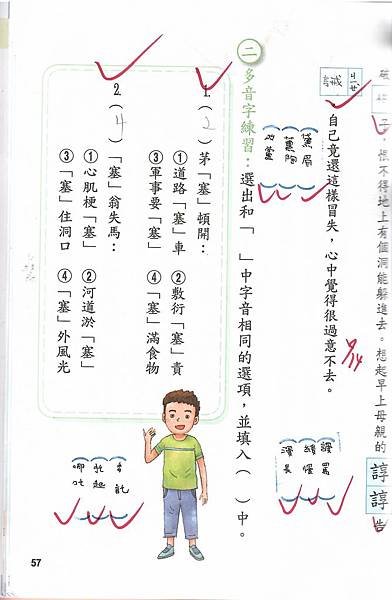 恨不得地上有個洞能躲進去。想起早上母親的諄諄告
誡
自己竟還這樣冒失，心中覺得很過意不去。
9/14
薰陶
謾罵
二 多音字練習：選出和「　」中字音相同的選項，並填入（　）中。
1.（2）茅「塞」頓開：
①道路「塞」車
②敷衍「塞」責
③軍事要「塞」
④「塞」滿食物
2.（4）「塞」翁失馬：
①心肌梗「塞」
②河道淤「塞」
③「塞」住洞口
④「塞」外風光
哪吒
57